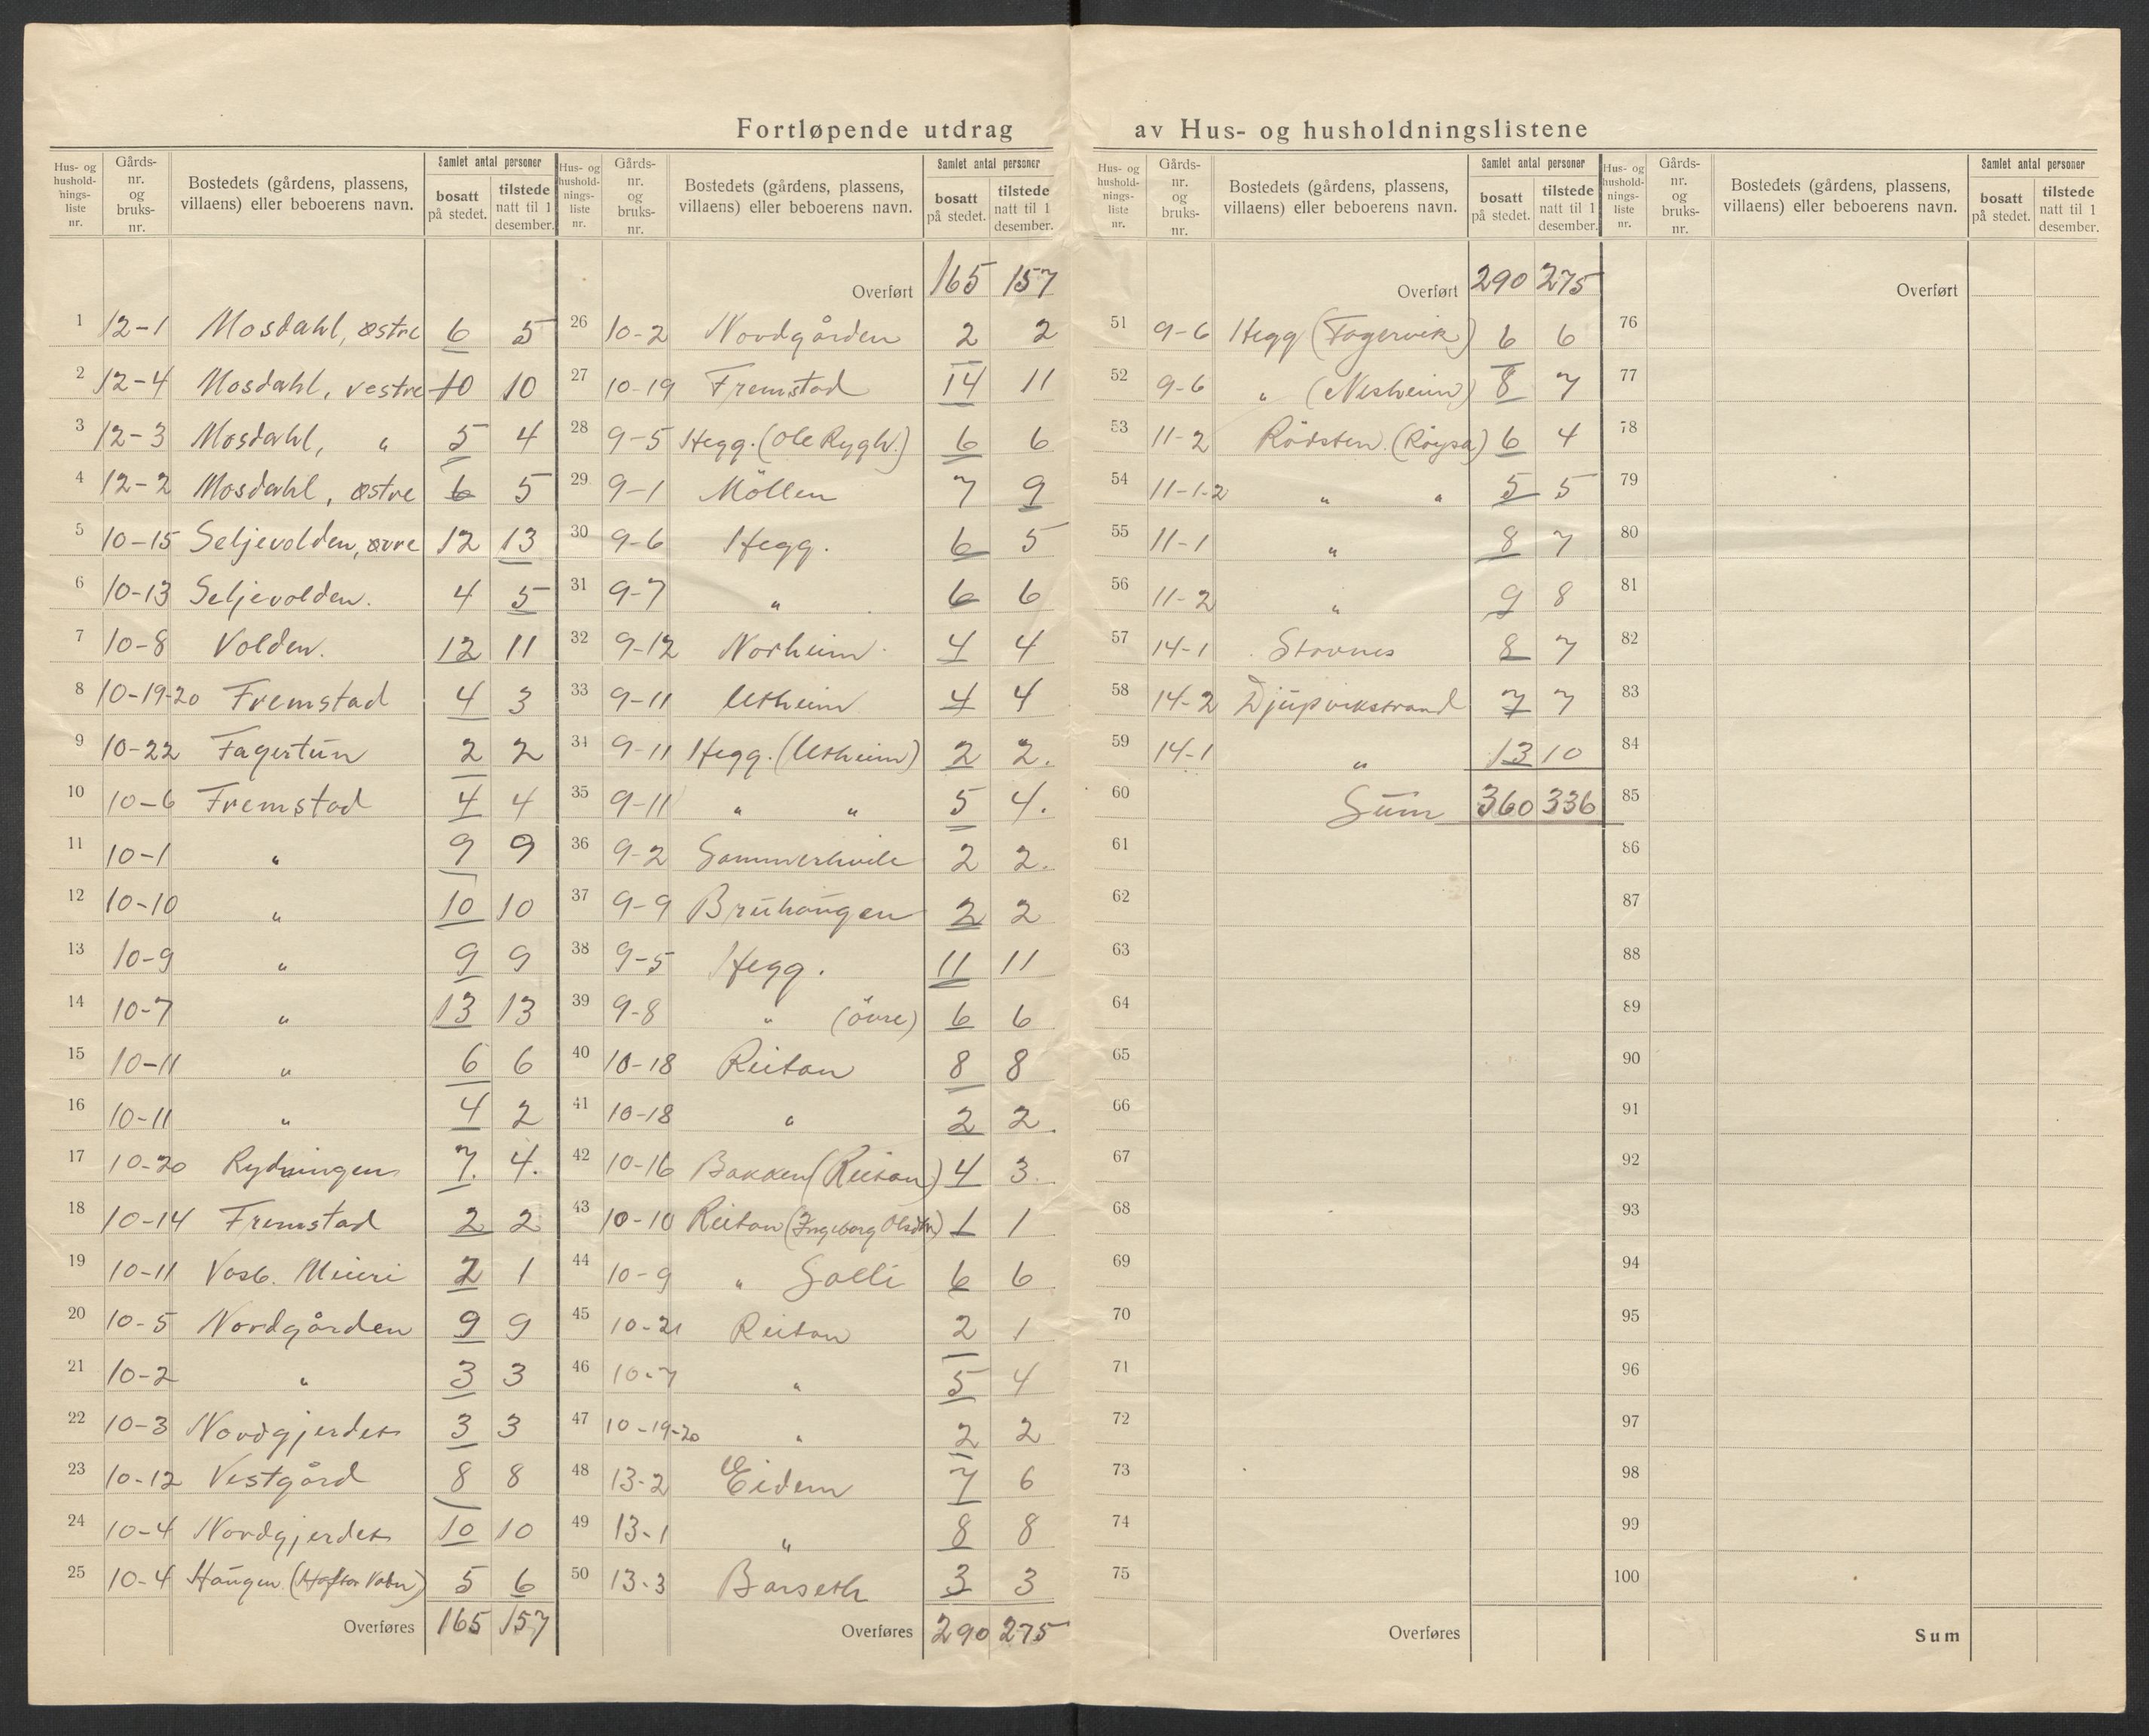 Fortløpende utdrag av Hus- og husholdningslistene
Hus- og husholdningsliste nr. | Gårdsnr. og bruksnr. | Bostedets (gårdens, plassens, villaens) eller beboerens navn. | Samlet antal personer bosatt på stedet. | tilstede natt til 1 desember.
1 12-1 Mosdahl, østre 6 5
2 12-4 Mosdahl, vestre 10 10
3 12-3 Mosdahl, " 5 4
4 12-2 Mosdahl, østre 6 5
5 10-15 Seljevolden, øvre 12 13
6 10-13 Seljevolden. 4 5
7 10-8 Volden. 12 11
8 10-19-20 Fremstad 4 3
9 10-22 Fagertun 2 2
10 10-6 Fremstad 4 4
11 10-1 " 9 9
12 10-10 " 10 10
13 10-9 " 9 9
14 10-7 " 13 13
15 10-11 " 6 6
16 10-11 " 4 2
17 10-20 Rydningen 7. 4.
18 10-14 Fremstad 2 2
19 10-11 Vasb. Meieri 2 1
20 10-5 Nordgården 9 9
21 10-2 " 3 3
22 10-3 Nordgjerdet 3 3
23 10-12 Vestgård 8 8
24 10-4 Nordgjerdet 10 10
25 10-4 Haugen 5 6
Overføres 165 157
Hus- og husholdningsliste nr. | Gårdsnr. og bruksnr. | Bostedets (gårdens, plassens, villaens) eller beboerens navn. | Samlet antal personer bosatt på stedet. | tilstede natt til 1 desember.
Overført 165 157
26 10-2 Nordgården 2 2
27 10-19 Fremstad 14 11
28 9-5 Hegg. (Ole Rygh.) 6 6
29 9-1 Möllen 7 9
30 9-6 Hegg. 6 5
31 9-7 " 6 6
32 9-12 Norheim 4 4
33 9-11 Utheim 4 4
34 9-11 Hegg. (Utheim) 2 2.
35 9-11 " " 5 4.
36 9-2 Sommerhvile 2 2.
37 9-9 Bruhaugen 2 2
38 9-5 Hegg. 11 11
39 9-8 " (övre) 6 6
40 10-18 Reitan 8 8
41 10-18 " 2 2.
42 10-16 Bakken (Reitan) 4 3.
43 10-10 Reitan (Ingeborg Olsdtr) 1 1
44 10-9 " Galli 6 6
45 10-21 Reitan 2 1
46 10-7 " 5 4
47 10-19-20 " 2 2
48 13-2 Eidem 7 6
49 13-1 " 8 8
50 13-3 Barseth 3 3
Overføres 290 275
Hus- og husholdningsliste nr. | Gårdsnr. og bruksnr. | Bostedets (gårdens, plassens, villaens) eller beboerens navn. | Samlet antal personer bosatt på stedet. | tilstede natt til 1 desember.
Overført 290 275
51 9-6 Hegg (Fagervik) 6 6
52 9-6 " (Nesheim) 8 7
53 11-2 Rödsten. (Röysa) 6 4
54 11-1-2 " " 5 5
55 11-1 " 8 7
56 11-2 " 9 8
57 14-1 Stavnes 8 7
58 14-2 Djupvikstrand 7 7
59 14-1 " 13 10
60 Sum 360 336
61
62
63
64
65
66
67
68
69
70
71
72
73
74
75
Overføres
Hus- og husholdningsliste nr. | Gårdsnr. og bruksnr. | Bostedets (gårdens, plassens, villaens) eller beboerens navn. | Samlet antal personer bosatt på stedet. | tilstede natt til 1 desember.
Overført
76
77
78
79
80
81
82
83
84
85
86
87
88
89
90
91
92
93
94
95
96
97
98
99
100
Sum